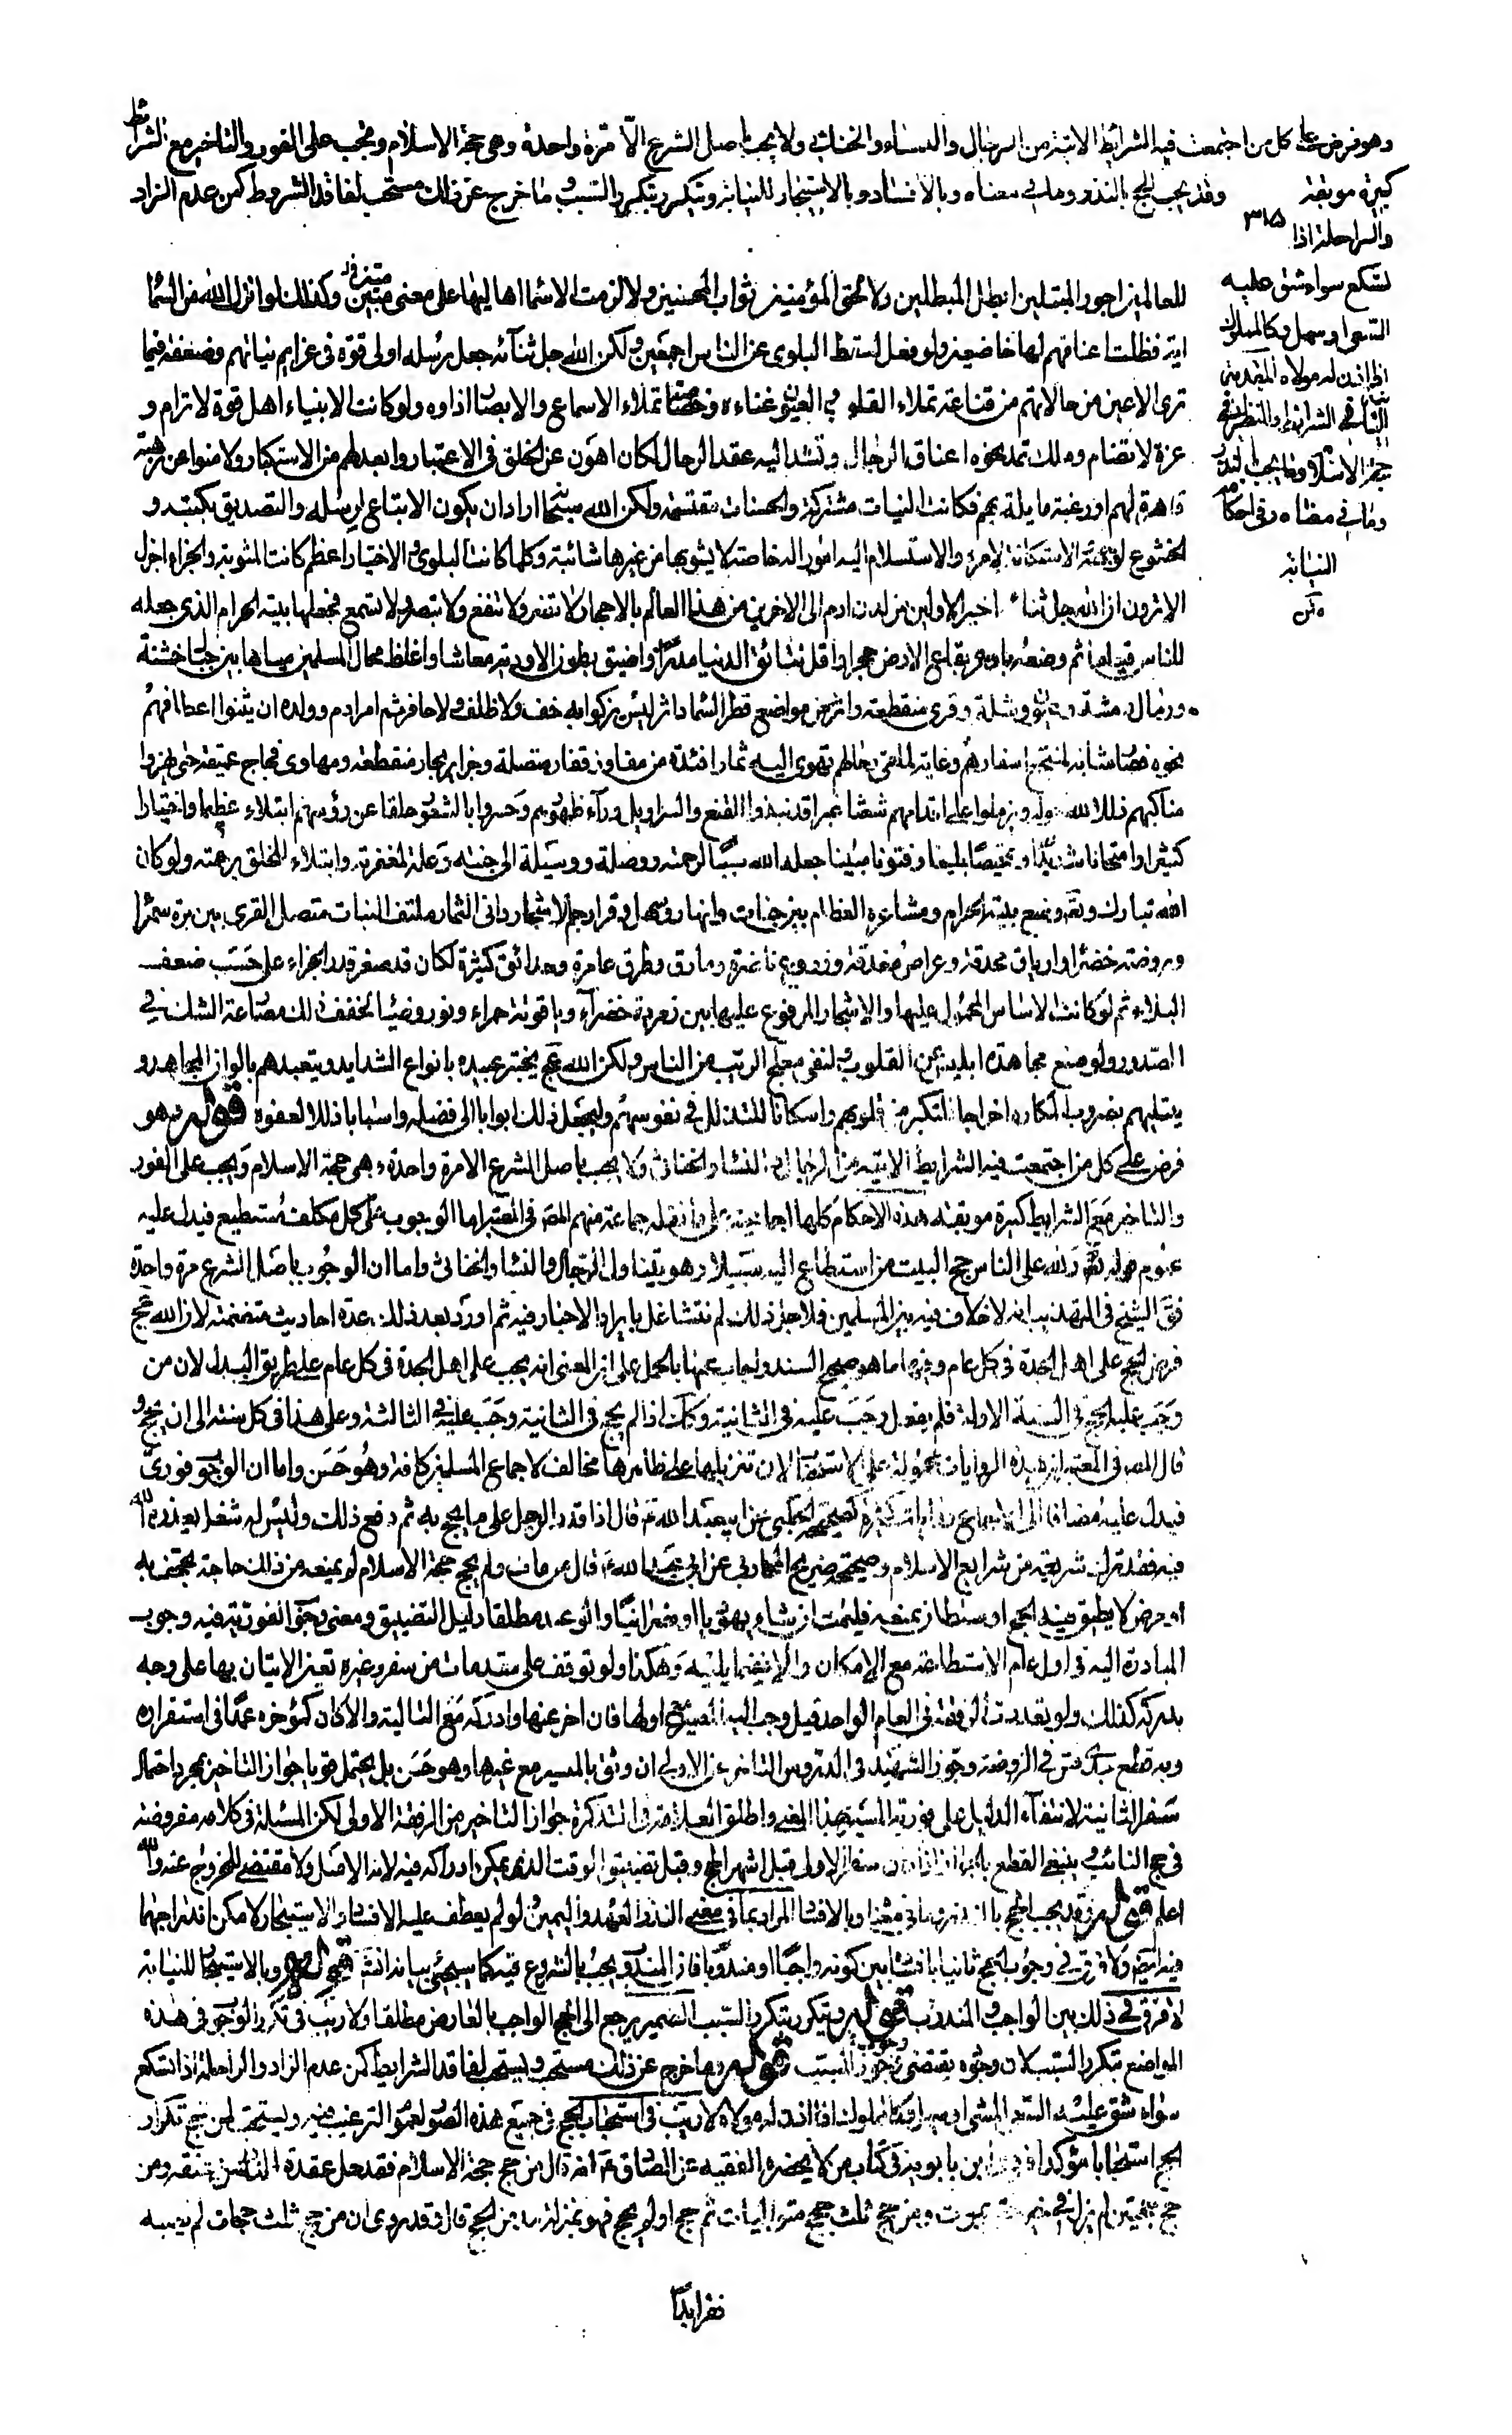 وهو فرض على كل من اجتمعت فيه الشرائط الاتية من الرجال والنساء والخناثى ولا يجب باصل الشرع الا مرة واحدة وهي حجة الاسلام ويجب على الفور والتاخير مع الشرائط
كبيرة موبقة وقد يجب الحج بالنذر وما في معناه وبالافساد وبالاستيجار للنيابة ويتكرر بتكرر السبب وما خرج عن ذلك مستحب لفاقد الشروط كمن عدم الزاد
والراحلة اذا
٣١٥
تسكع سواء شق عليه
السعي او سهل وكالمملوك
اذا اذن له مولاه
في الشرائط والنظر في
حجة الاسلام وما يجب بالنذر
وما في معناه وفي احكام
النيابة
للعالمين اجور المبتلين ابطل المبطلين ولا لحق المؤمنين ثواب المحسنين ولا لزمت الاسماء اهاليها على معنى مبين وكذلك لو انزل الله من السماء
اية فظلت اعناقهم لها خاضعين ولو فعل لسقط البلوى عن الناس اجمعين ولكن الله جل ثناؤه جعل رسله اولى قوة في عزايم نياتهم وضعفة فيما
ترى الاعين من حالاتهم من قناعة تملاء القلوب والعيون غناءه وخصاصة تملاء الاسماع والابصار اذاوه ولو كانت الانبياء اهل قوة لا ترام و
عزة لا تضام وملك تمد نحوه اعناق الرجال وتشد اليه عقد الرحال لكان اهون على الخلق في الاعتبار وابعد لهم من الاستكبار ولامنوا عن رهبة
قاهرة لهم او رغبة مايلة بهم فكانت النيات مشتركة والحسنات مقتسمة ولكن الله سبحانه اراد ان يكون الاتباع لرسله والتصديق بكتبه و
الخشوع لوجهه والاستكانة لامره والاستسلام اليه امور له خاصة لا يشوبها من غيرها شائبة وكلما كانت البلوى والاختبار اعظم كانت المثوبة والجزاء اجزل
الا ترون ان الله جل ثناؤه اختبر الاولين من لدن ادم الى الاخرين من هذا العالم بالاحجار لا تضر ولا تنفع ولا تبصر ولا تسمع فجعلها بيته الحرام الذي جعله
للناس قياما ثم وضعه باوعر بقاع الارض حجرا واقل نتائق الدنيا مدرا واضيق بطون الاودية معاشا واغلظ محال المسلمين مياها بين جبال خشنة
ورمال دمثة وعيون وشلة وقرى منقطعة واثر من مواضع قطر السماء داثر ليس يزكوا به خف ولا ظلف ولا حافر ثم امر ادم وولده ان يثنوا اعطافهم
نحوه فصار مثابة لمنتجع اسفارهم وغاية لملقى رحالهم تهوى اليه ثمار افئدة من مفاوز قفار متصلة وجزاير بحار منقطعة ومهاوى فجاج عميقة حتى يهزوا
مناكبهم ذللا لله حوله ويرملوا على اقدامهم شعثا غبرا قد نبذوا القنع والسراويل وراء ظهورهم وحسروا بالشعور حلقا عن رؤسهم ابتلاء عظيما واختبارا
كثيرا وامتحانا شديدا وتمحيصا بليغا وفتونا مبينا جعله الله سببا لرحمته ووصلة ووسيلة الى جنته وعلة لمغفرته وابتلاء للخلق برحمته ولو كان
الله تبارك وتعالى وضع بيته الحرام ومشاعره العظام بين جنات وانهار وسهل وقرار جم الاشجار داني الثمار ملتف النبات متصل القرى بين برة سمراء
وروضة خضراء وارياف محدقة وعراص مغدقة وزروع ناضرة وطرق عامرة وحدائق كثيرة لكان قد صغر قدر الجزاء على حسب ضعف
البلاء ثم لو كانت الاساس المحمول عليها والاحجار المرفوع عليها بين زمردة خضراء وياقوتة حمراء ونور وضياء لخفف ذلك مصارعة الشك في
الصدور ولوضع مجاهدة ابليس عن القلوب ولنفى معتلج الريب من الناس ولكن الله عز وجل يختبر عبيده بانواع الشدايد ويتعبدهم بالوان المجاهد و
يبتليهم بضروب المكاره اخراجا للتكبر من قلوبهم واسكانا للتذلل في نفوسهم وليجعل ذلك ابوابا الى فضله واسبابا ذللا لعفوه قوله وهو
فرض على كل من اجتمعت فيه الشرايط الاتية من الرجال والنساء والخناثى ولا يجب باصل الشرع الا مرة واحدة وهي حجة الاسلام ويجب على الفور
والتاخير مع الشرايط كبيرة موبقة هذه الاحكام كلها اجماعية على ما نقله جماعة منهم المص في المعتبر اما الوجوب على كل مكلف مستطيع فيدل عليه
عموم قوله تعالى ولله على الناس حج البيت من استطاع اليه سبيلا وهو يتناول الرجال والنساء والخناثى واما ان الوجوب باصل الشرع مرة واحدة
فقال الشيخ في التهذيب انه لا خلاف فيه بين المسلمين فلاجل ذلك لم نتشاغل بايراد الاخبار فيه ثم اورد بعد ذلك عدة احاديث متضمنة لان الله عز وجل
فرض الحج على اهل الجدة في كل عام وفيها ما هو صحيح السند واجاب عنها بالحمل على ان المعنى انه يجب على اهل الجدة في كل عام على طريق البدل لان من
وجب عليه الحج في السنة الاولة فلم يفعل وجب عليه في الثانية وكذا اذا لم يحج في الثانية وجب عليه في الثالثة وعلى هذا في كل سنة الى ان يحج و
قال المص في المعتبر ان هذه الروايات محمولة على الاستحباب لان تنزيلها على ظاهرها مخالف لاجماع المسلمين كافة وهو حسن واما ان الوجوب فوري
فيدل عليه مضافا الى الاجماع روايات كثيرة كصحيحة الحلبي عن ابي عبد الله ع قال اذا قدر الرجل على ما يحج به ثم دفع ذلك وليس له شغل يعذره الله
فيه فقد ترك شريعة من شرايع الاسلام وصحيحة ذريح المحاربي عن ابي عبد الله ع قال من مات ولم يحج حجة الاسلام لم يمنعه من ذلك حاجة تجحف به
او مرض لا يطيق فيه الحج او سلطان يمنعه فليمت ان شاء يهوديا او نصرانيا والوعيد مطلقا دليل التضييق ومعنى وجوب الفورية فيه وجوب
المبادرة اليه في اول عام الاستطاعة مع الامكان والا ففيما يليه وهكذا ولو توقف على مقدمات من سفر وغيره تعين الاتيان بها على وجه
يدركه كذلك ولو تعددت الرفقة في العام الواحد قيل وجب المسير مع اولها فان اخر عنها وادركه مع التالية والا كان كمؤخره عمدا في استقراره
وبه قطع جدي قدس سره في الروضة وجوز الشهيد في الدروس التاخر عن الاولى ان وثق بالمسير مع غيرها وهو حسن بل يحتمل قويا جواز التاخير بمجرد احتمال
سفر الثانية لانتفاء الدليل على فورية المسير بهذا المعنى واطلق العلامة في التذكرة جواز التاخير من الرفقة الاولى لكن المسئلة في كلامه مفروضة
في حج النائب وينبغي القطع بالجواز اذا كان سفر الاولى قبل اشهر الحج وقبل تضييق الوقت الذي يمكن ادراكه فيه لانه الاصل ولا مقتضى للخروج عنه والله
اعلم قوله وقد يجب الحج بالنذر وما في معناه وبالافساد المراد بما في معنى النذر العهد واليمين ولو لم يعطف عليه الافساد والاستيجار لامكن اندراجهما
فيه ايضا ولا فرق في وجوب الحج ثانيا بافساده بين كونه واجبا او مندوبا فان المندوب يجب بالشروع فيه كما سيجئ بيانه انشاء الله قوله وبالاستيجار للنيابة
لا فرق في ذلك بين الواجب والمندوب قوله ويتكرر بتكرر السبب الضمير يرجع الى الحج الواجب بالعارض مطلقا ولا ريب في تكرر الوجوب في هذه
المواضع بتكرر السبب لان وجوده يقتضي وجود المسبب قوله وما خرج عن ذلك مستحب ويستحب لفاقد الشرايط كمن عدم الزاد والراحلة اذا تسكع
سواء شق عليه السعي او سهل وكالمملوك اذا اذن له مولاه لا ريب في استحباب الحج في جميع هذه الصور لعموم الترغيب فيه ويستحب لمن حج تكرار
الحج استحبابا مؤكدا فروى ابن بابويه في كتاب من لا يحضره الفقيه عن الصادق ع انه قال من حج حجة الاسلام فقد حل عقدة من النار من عنقه ومن
حج حجتين لم يزل في خير حتى يموت ومن حج ثلث حجج متواليات ثم حج او لم يحج فهو بمنزلة مدمن الحج قال وقد روى ان من حج ثلث حجات لم يصبه
فقر ابدا